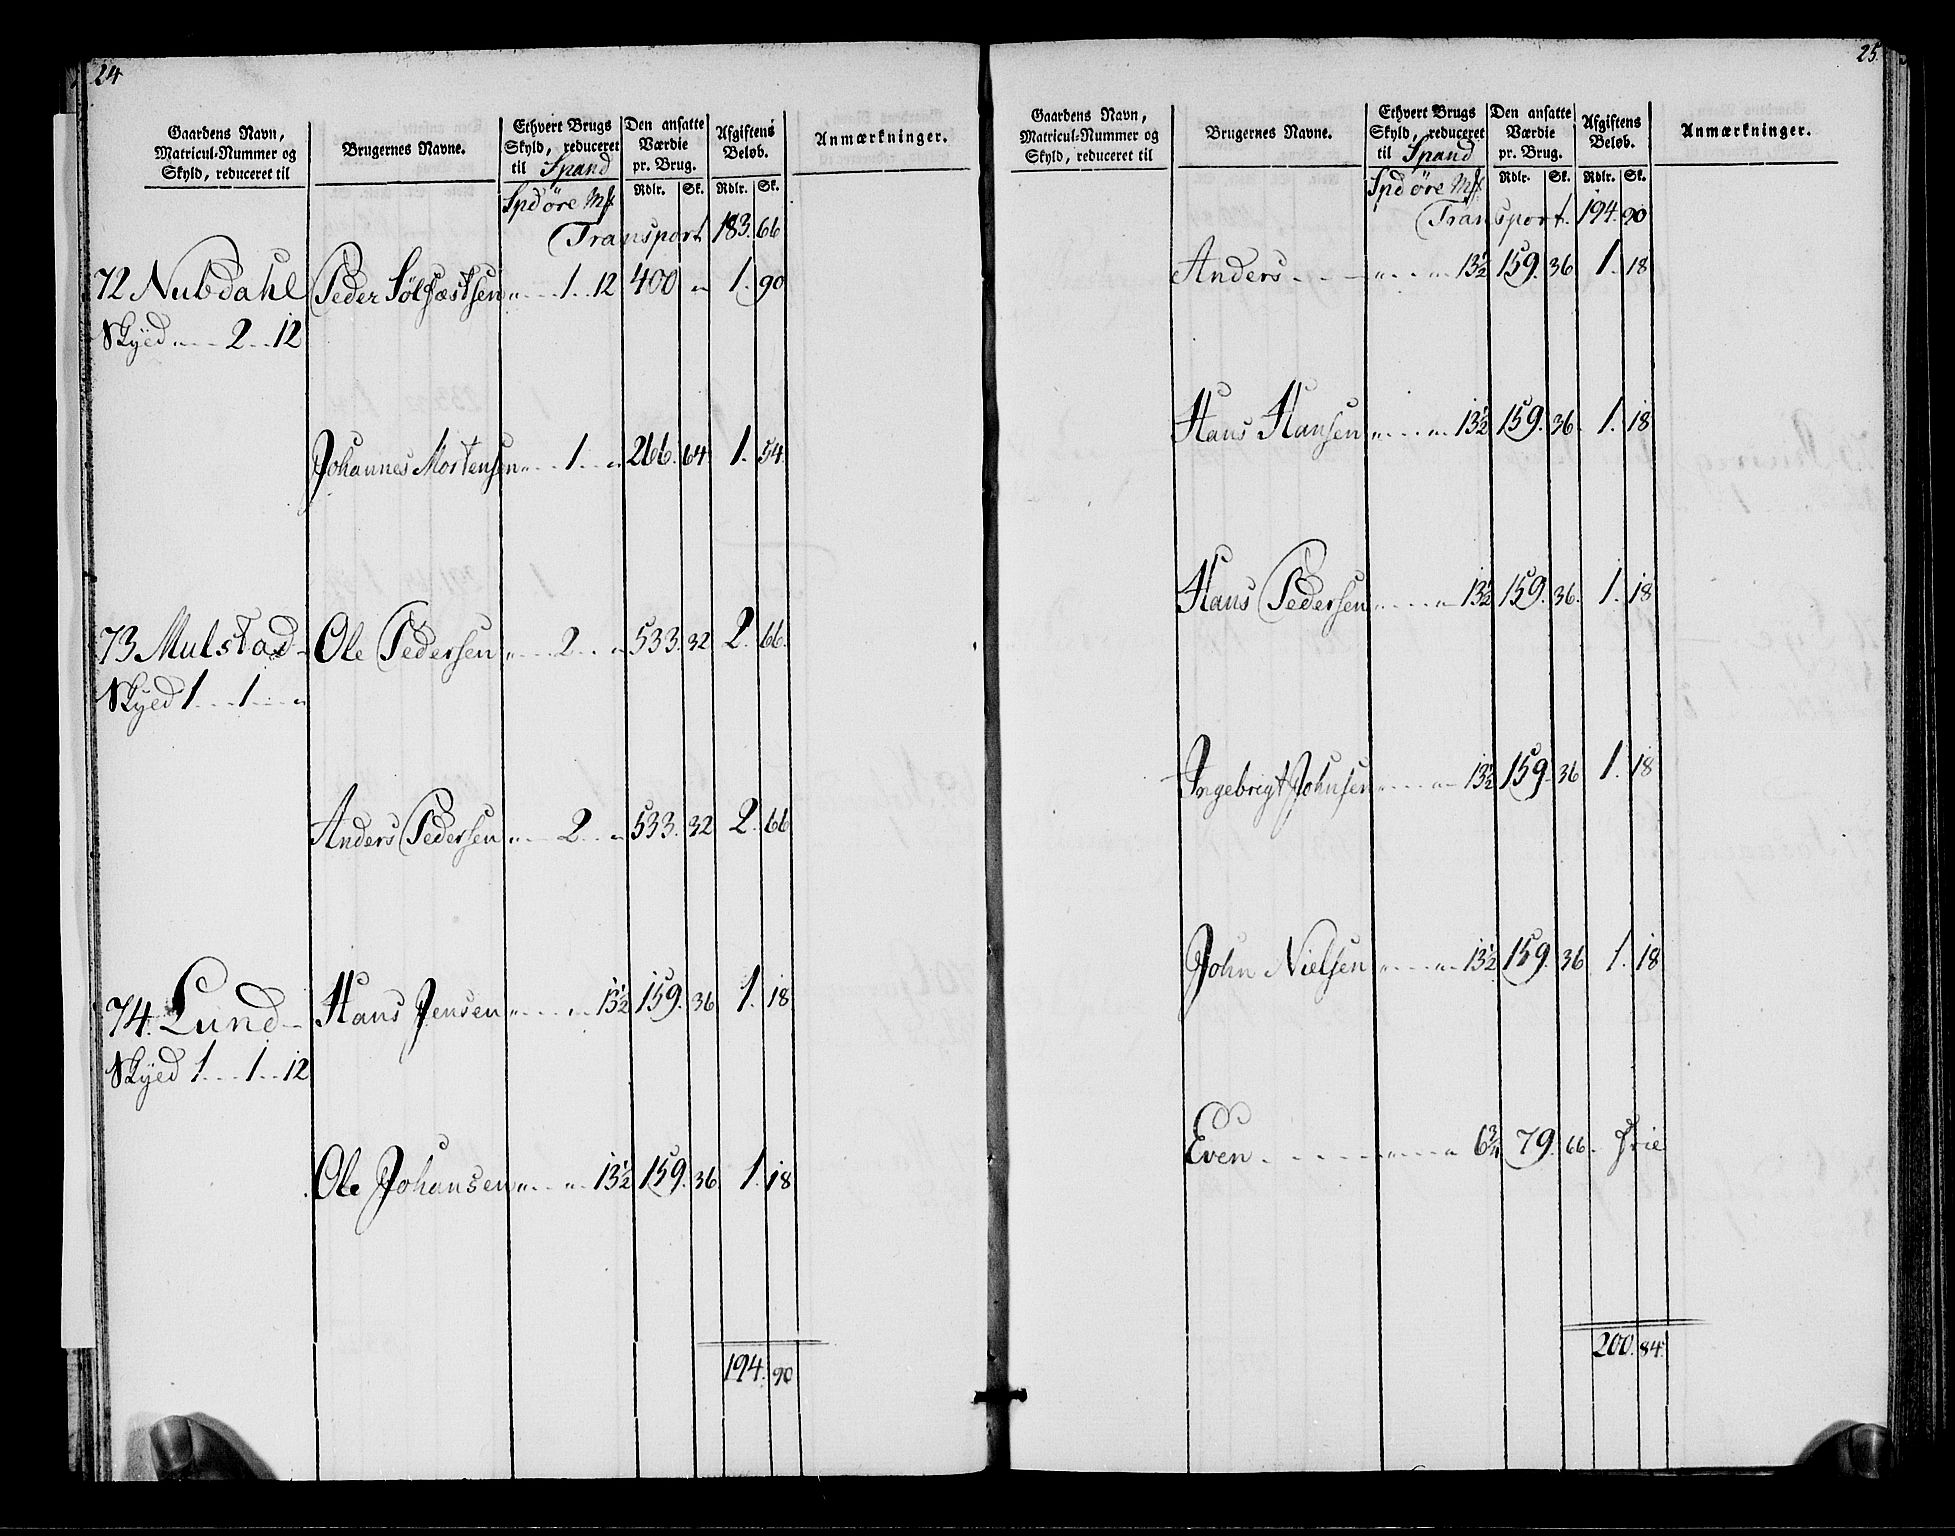 24
Gaardens Navn, Matricul-Nummer og Skyld, reduceret til | Brugernes Navne. | Ethvert Brugs Skyld, reduceret til Spand | Den ansatte Værdie pr. Brug. | Afgiftens Beløb. | Anmærkninger.
Spd öre Mk | Rdlr. | Sk. | Rdlr. | Sk.
Transport 183. 66
72 Nubdahl Peder Sölfæstsen „ 1 12 400 „ 1. 90
Skyed „ 2 12
Johannes Mortensen „ 1 „ 266. 64 1. 54
73 Mulstad Ole Pedersen „ 2 „ 533. 32 2. 66.
Skyed 1 1 „
Anders Pedersen „ 2 „ 533. 32 2. 66
74. Lund Hans Jensen „ „ 13½ 159. 36 1. 18
Skyed 1 1 12
Ole Johansen „ „ 13½ 159. 36 1. 18
194. 90
25.
Gaardens Navn, Matricul-Nummer og Skyld, reduceret til | Brugernes Navne. | Ethvert Brugs Skyld, reduceret til Spand | Den ansatte Værdie pr. Brug. | Afgiftens Beløb. | Anmærkninger.
Spd öre Mk | Rdlr. | Sk. | Rdlr. | Sk.
Transport. 194. 90
Anders „ „ 13½ 159. 36 1. 18
Hans Hansen „ „ 13½ 159. 36. 1. 18
Hans Pedersen „ „ 13½ 159. 36. 1. 18
Ingebrigt Johnsen „ „ 13½ 159. 36 1. 18
John Nielsen „ „ 13½ 159. 36 1. 18
Even „ „ 6¾ 79. 66. frie
200. 84.